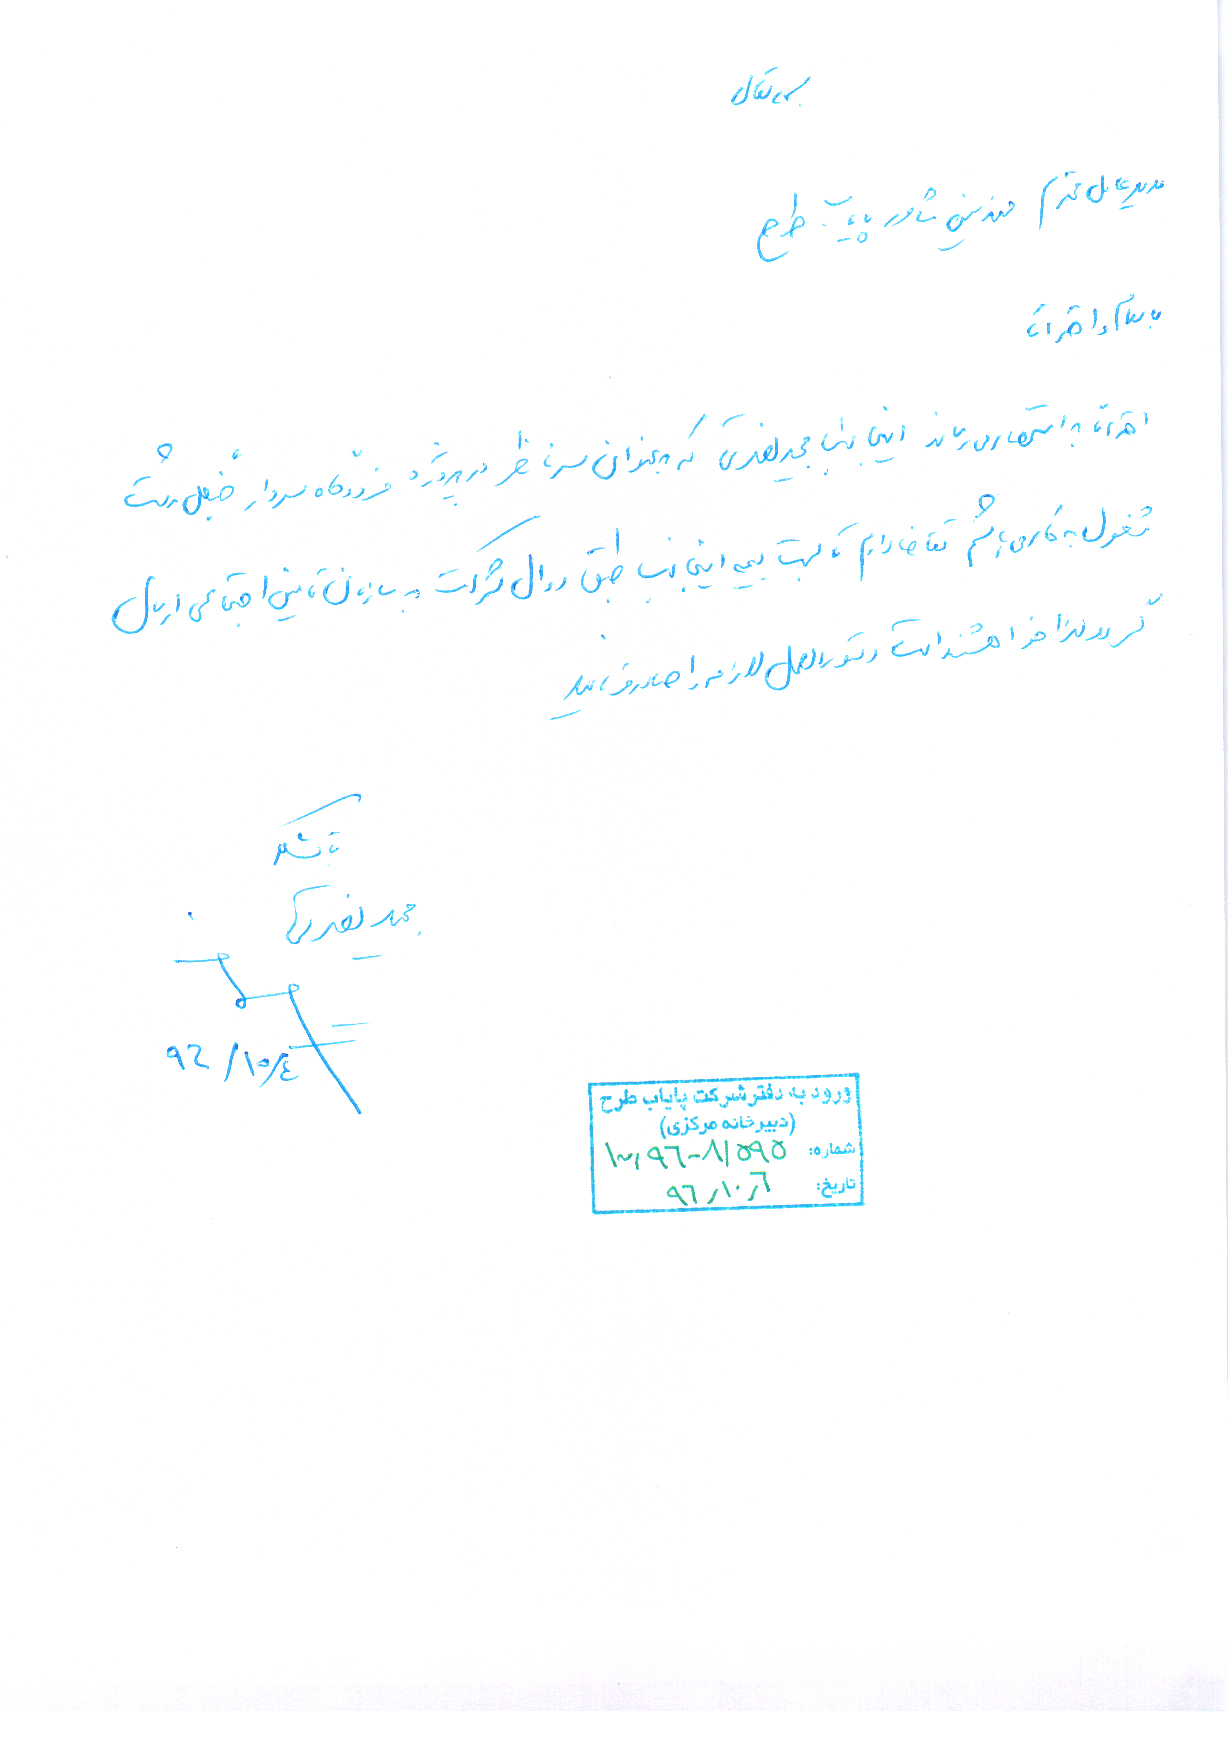 بسمه تعالی
مدیرعامل محترم مهندسین مشاور پایاب طرح
با سلام و احترام
احتراماً به استحضار می‌رساند اینجانب مجید که بعنوان سرناظر در پروژه فرودگاه سردار جنگل رشت
مشغول به کار می‌باشم تقاضا دارم تا لیست بیمه اینجانب طبق روال شرکت به سازمان تامین اجتماعی ارسال
گردد لذا خواهشمند است دستورالعمل لازمه را صادر فرمائید
با تشکر
مجید
۹۶/۱۰/۴
ورود به دفتر شرکت پایاب طرح
(دبیرخانه مرکزی)
شماره: ۸/۵۹۵-
تاریخ: ۹۶/۱۰/۶